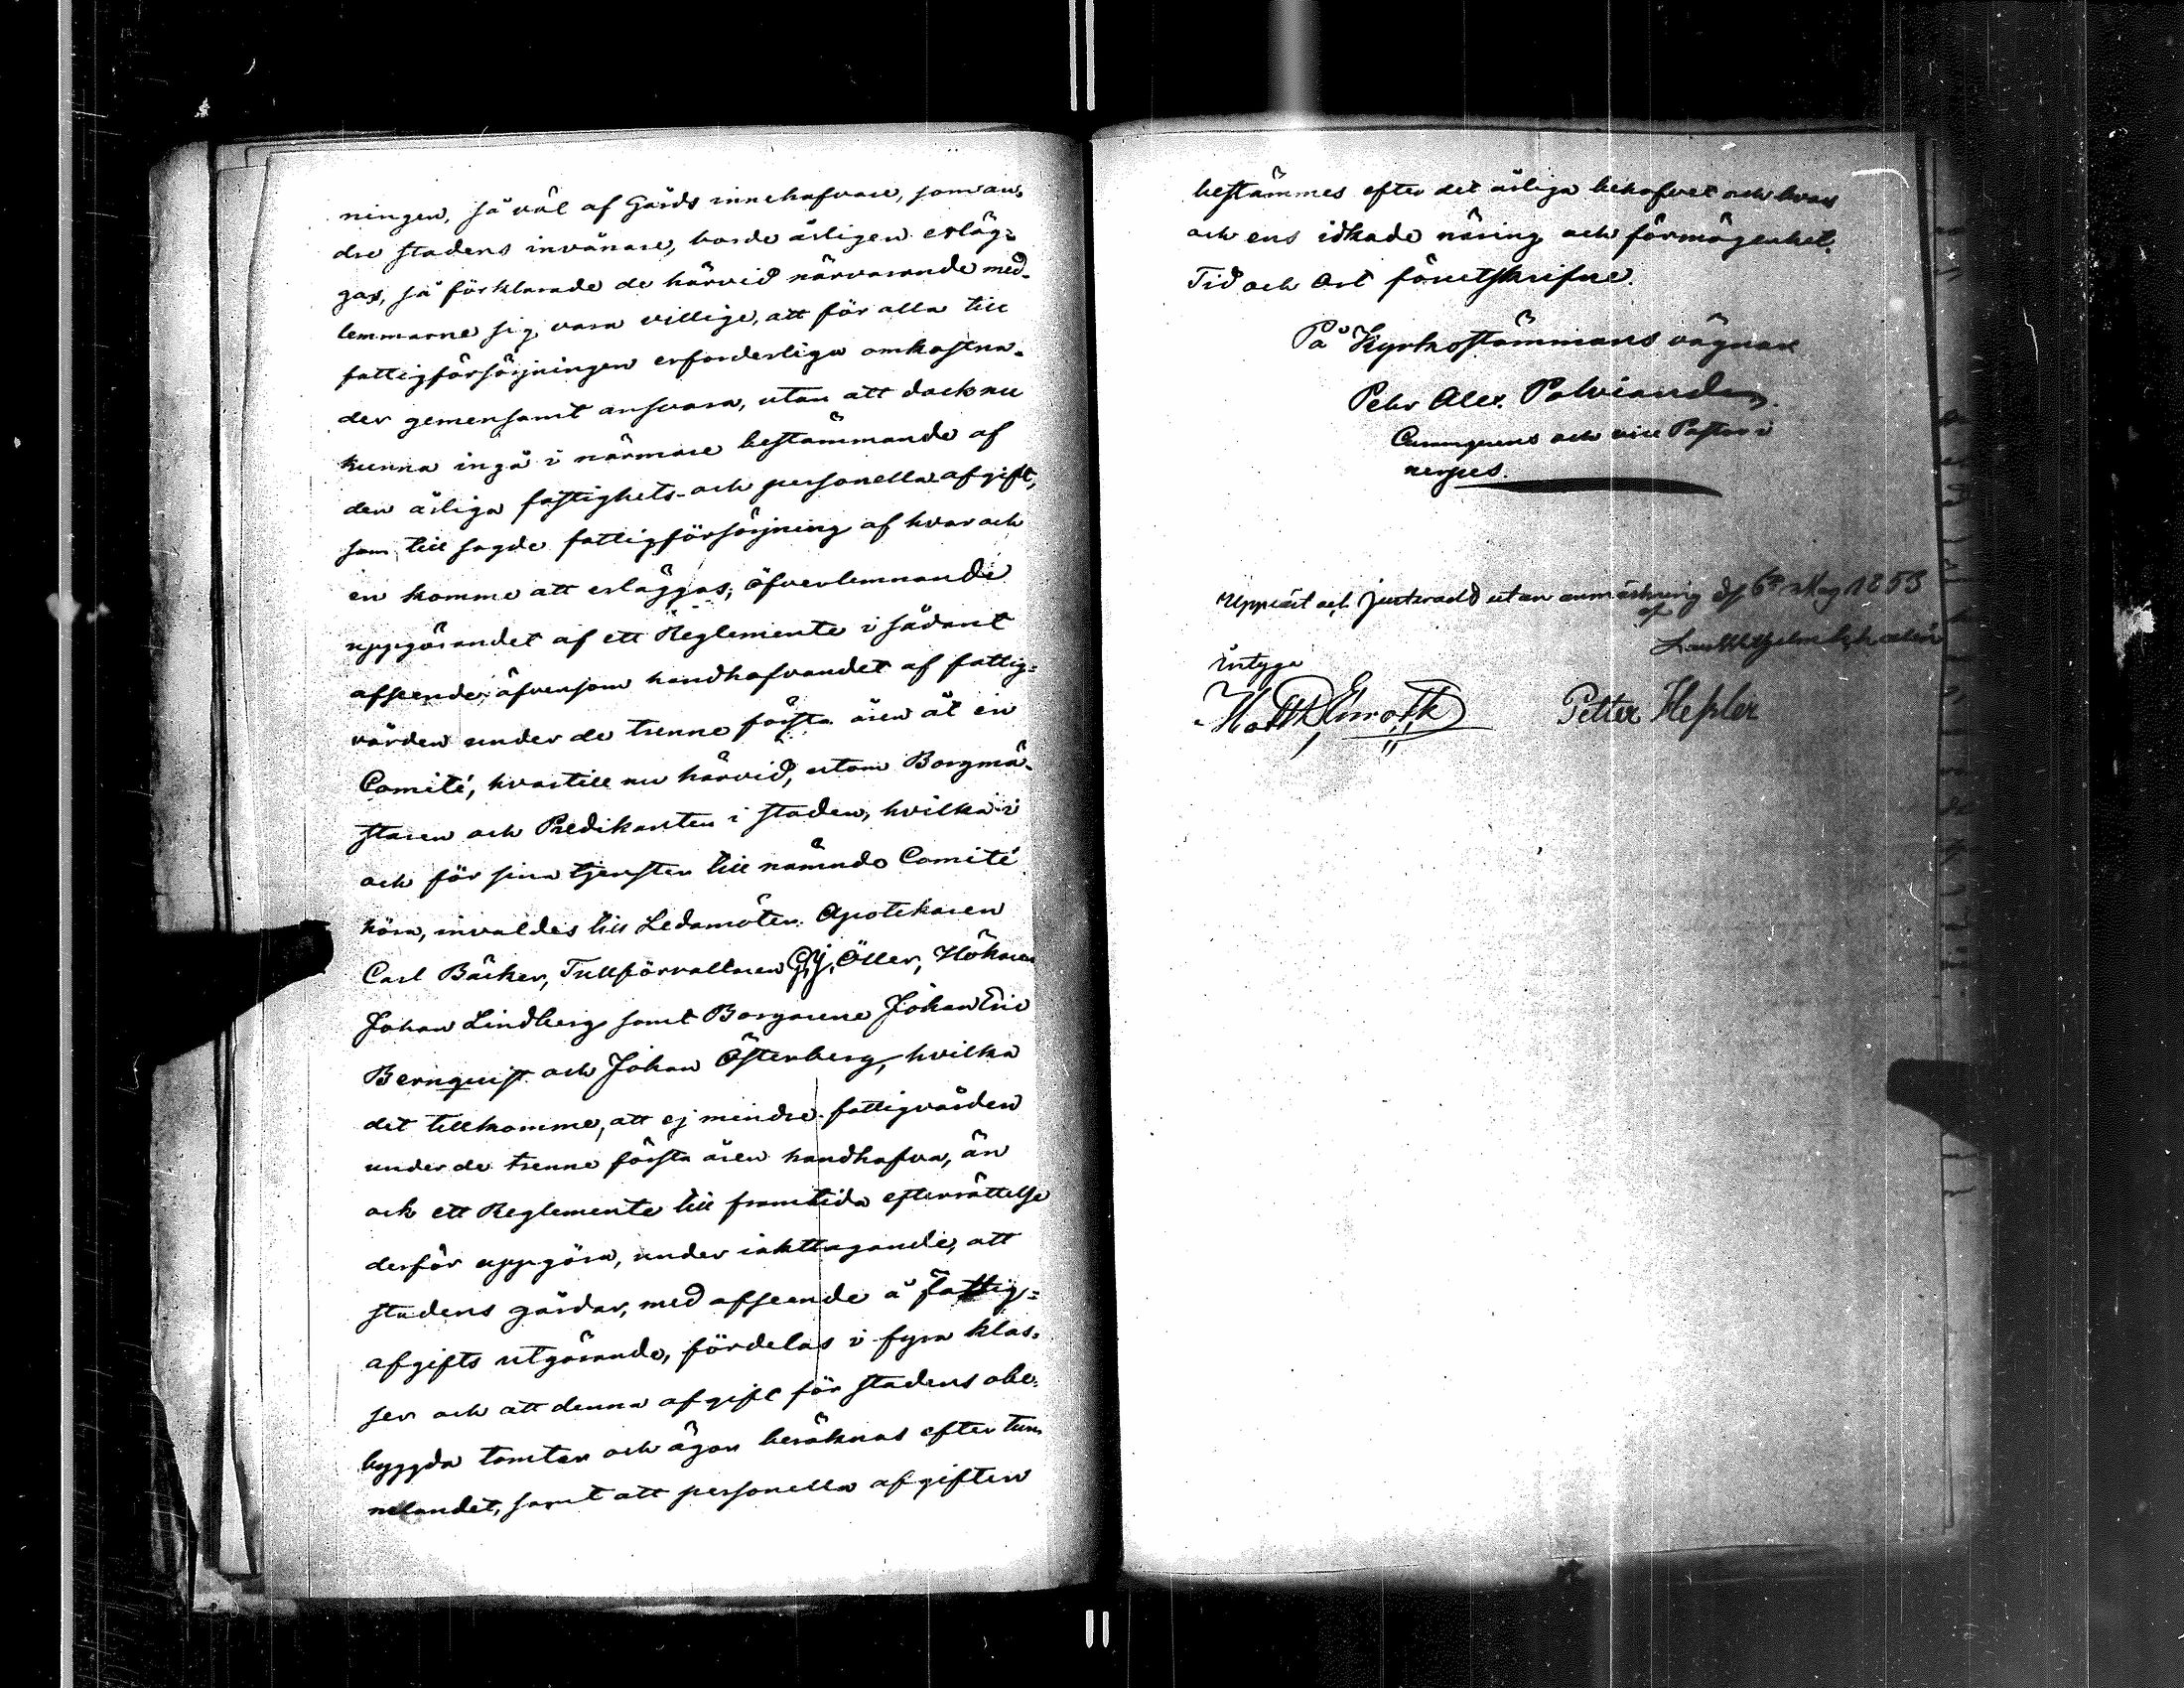 ningen, så väl af Gårds innehafvare, som an-
dre stadens invånare, borde årligen erläg-
gas, så förklarade de härvid närvarande med-
lemmarne sig vara villige, att för alla till
fattigförsörjningen erforderliga omkostna-
der gemensamt ansvara, utan att dock nu
kunna ingå i närmare bestämmande af
den årliga fastighets- och personella afgift,
som till sagde fattigförsörjning af hvar och
en komme att erläggas, öfverlemnande
uppgörandet af ett Reglemente i sådant
afseende, äfvensom handhafvandet af fattig-
vården under de trenne första åren åt en
Comité, hvartill nu härvid, utom Borgmä-
staren och Predikanten i staden, hvilka i
och för sina tjenster till nämnde Comité
höra, invaldes till Ledamöter: Apotekaren
Carl Bäcker, Tullförvaltaren G. J. Öller, Hökaren
Johan Lindberg samt Borgarene Johan Eric
Bernquist och Johan Österberg, hvilka
det tillkomme, att ej mindre fattigvården
under de trenne första åren handhafva, än
ock ett Reglemente till framtida efterrättelse
derför uppgöra, under iakttagande, att
stadens gårdar, med afseende å fattig-
afgifts utgörande, fördelas i fyra klas-
ser och att denna afgift för stadens obe-
byggda tomter och ägor beräknas efter tun-
nelandet, samt att personella afgiften
bestämmes efter det årliga behofvet och hvars
och ens idkade näring och förmögenhet.
Tid och Ort förutskrifne.
På Kyrkostämmans vägnar
Pehr Alex. Polviander
och vice Pastor i
nerpes.
Uppläst och justeradt utan anmärkning d. 6 Maj 1853
af
intyga
Petter Hessler